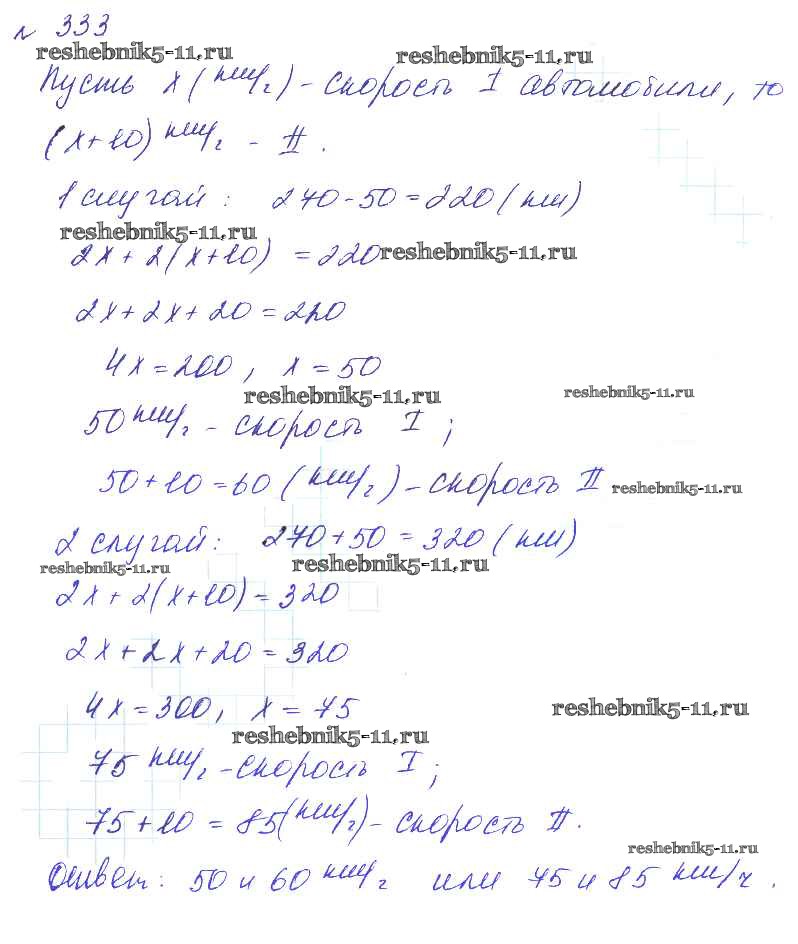 № 333
reshebnik5-11.ru reshebnik5-11.ru
Пусть x (км/г) - скорость I автомобили, то
(x+10) км/г - II.
1 случай: 270-50=220 (км)
reshebnik5-11.ru
2x + 2(x+10) = 220 reshebnik5-11.ru
2x+2x+20=220
4x=200, x=50
reshebnik5-11.ru reshebnik5-11.ru
50 км/г - скорость I;
50+10=60 (км/г) - скорость II reshebnik5-11.ru
2 случай: 270+50=320 (км)
reshebnik5-11.ru reshebnik5-11.ru
2x+2(x+10)=320
2x+2x+20=320
4x=300, x=75
reshebnik5-11.ru reshebnik5-11.ru
75 км/г - скорость I;
75+10=85 (км/г) - скорость II.
reshebnik5-11.ru
Ответ: 50 и 60 км/г или 75 и 85 км/ч.